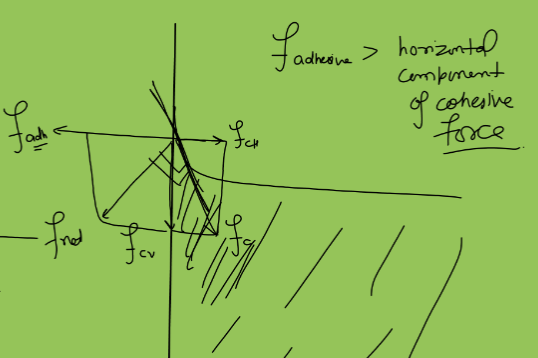 f adhesive > horizontal
component
of cohesive
force
f adh
f CH
f net
f CV
f C